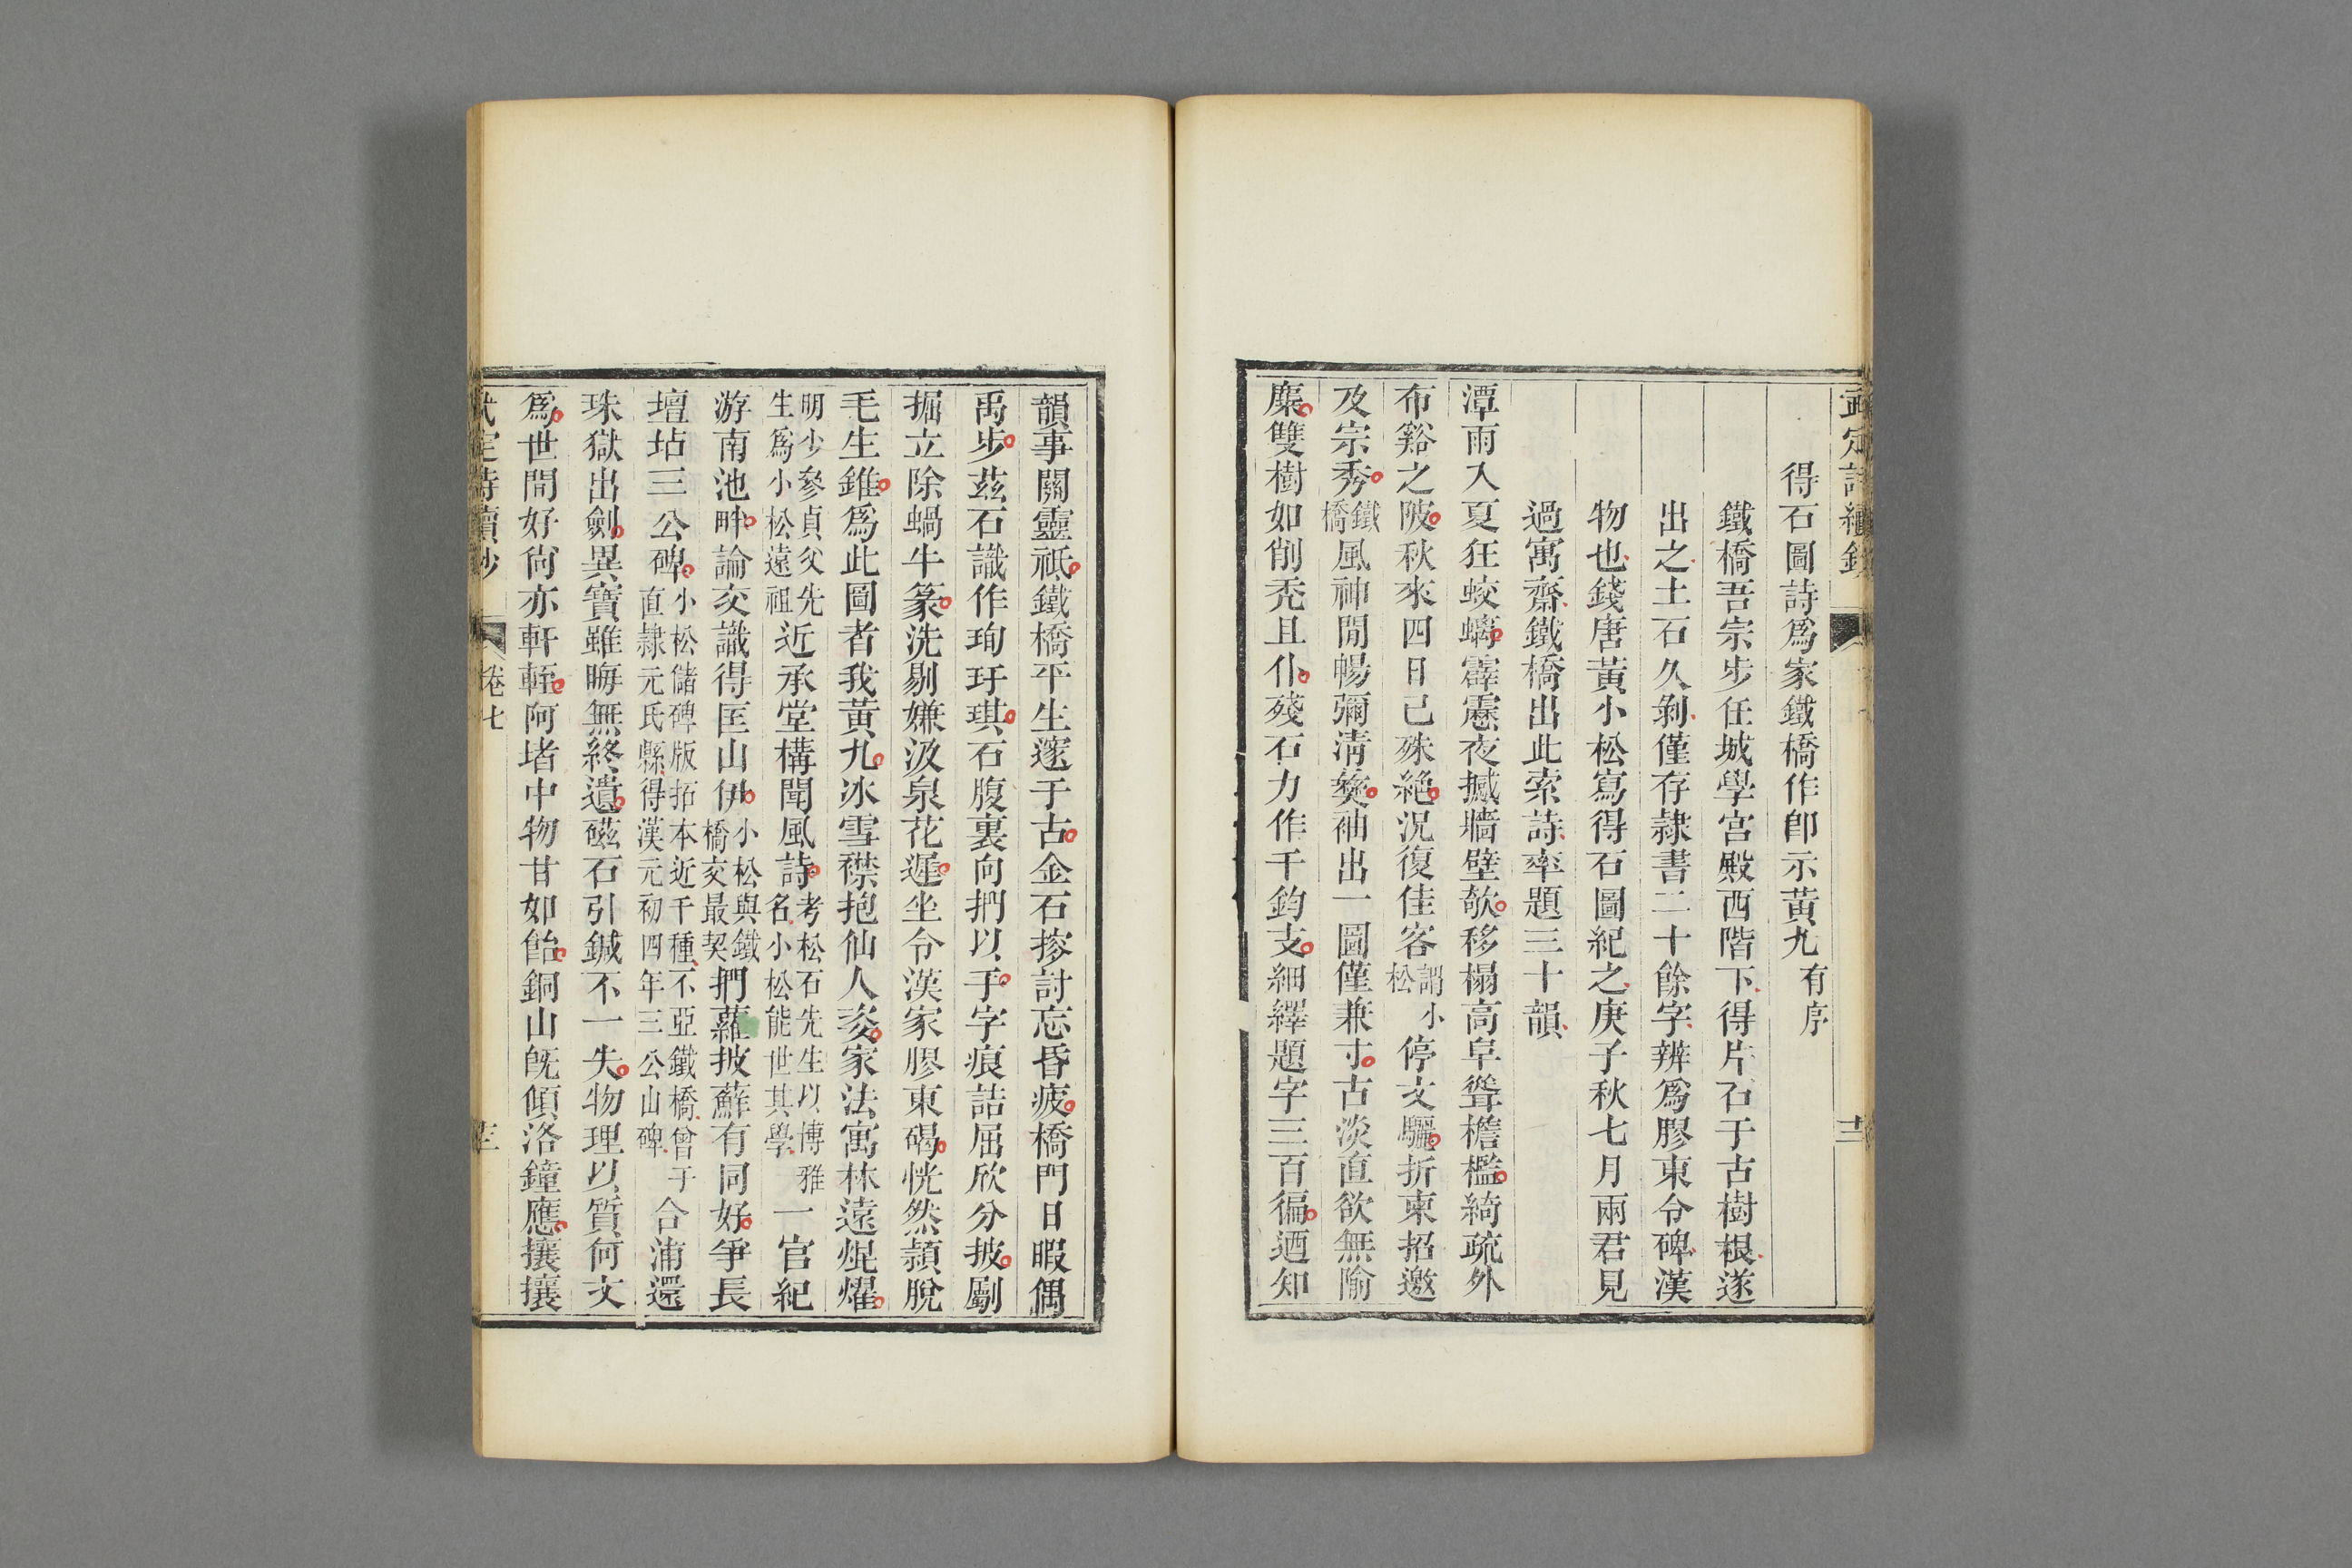 得石圖詩爲家鐵橋作卽示黃九有序
鐵橋吾宗步任城學宮殿西階下得片石于古樹根遂
出之土石久剝僅存隷書二十餘字辨爲膠東令碑漢
物也錢唐黃小松寫得石圖紀之庚子秋七月兩君見
過寓齋鐵橋出此索詩率題三十韻
潭雨入夏狂蛟螭霹靂夜撼牆壁欹移榻高阜聳檐檻綺疏外
布谿之陂秋來四日己殊絶況復佳客謂小松停文驪折柬招邀
及宗秀鐵橋風神閒暢彌清獘袖出一圖僅兼寸古淡直欲無隃
麋雙樹如削禿且仆殘石力作千鈞支細繹題字三百徧迺知
韻事關靈祇鐵橋平生邃于古金石搜討忘昏疲橋門日暇偶
禹步茲石識作珣玗琪石腹裏向捫以手字痕詰屈欣分披劚
掘立除蝸牛篆洗剔嫌汲泉花遲坐令漢家膠東碣恍然穎脫
毛生錐爲此圖者我黃九冰雪襟抱仙人姿家法寓林遠焜燿
明少參貞父先生爲小松遠祖近承堂構聞風詩考松石先生以博雅名小松能世其學一官紀
游南池畔論交識得匡山伊小松與鐵橋交最契捫蘿披蘚有同好爭長
壇坫三公碑小松儲碑版拓本近千種不亞鐵橋曾于直隷元氏縣得漢元初四年三公山碑合浦還
珠獄出劍異寶雖晦無終遺磁石引鍼不一失物理以質何文
爲世間好尙亦軒輊阿堵中物甘如飴銅山旣傾洛鐘應攘攘
卷七